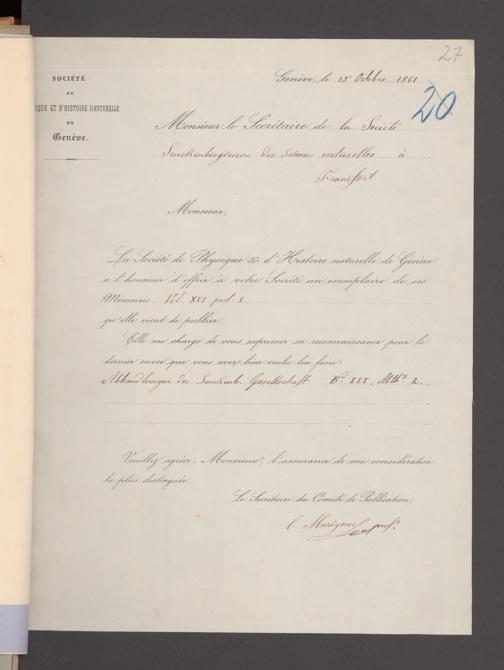 27
20
SOCIÉTÉ
DE
IQUE ET D'HISTOIRE NATURELLE
DE
Genève.
Genève, le 15 Octobre 1861
Monsieur le Secrétaire de la Société
Senckenbergienne des Sciences naturelles à
Francfort
Monsieur,
La Société de Physique & d'Histoire naturelle de Genève
a l'honneur d'offrir à votre Société un exemplaire de ses
Mémoires Vol. XVI part. 1.
qu'elle vient de publier.
Elle me charge de vous exprimer sa reconnaissance pour le
dernier envoi que vous avez bien voulu lui faire:
Abhandlungen der Senckenb. Gesellschaft Bd. III.
Veuillez agréer, Monsieur, l'assurance de ma considération
la plus distinguée.
Le Secrétaire du Comité de Publication,
C. Marignac prof.